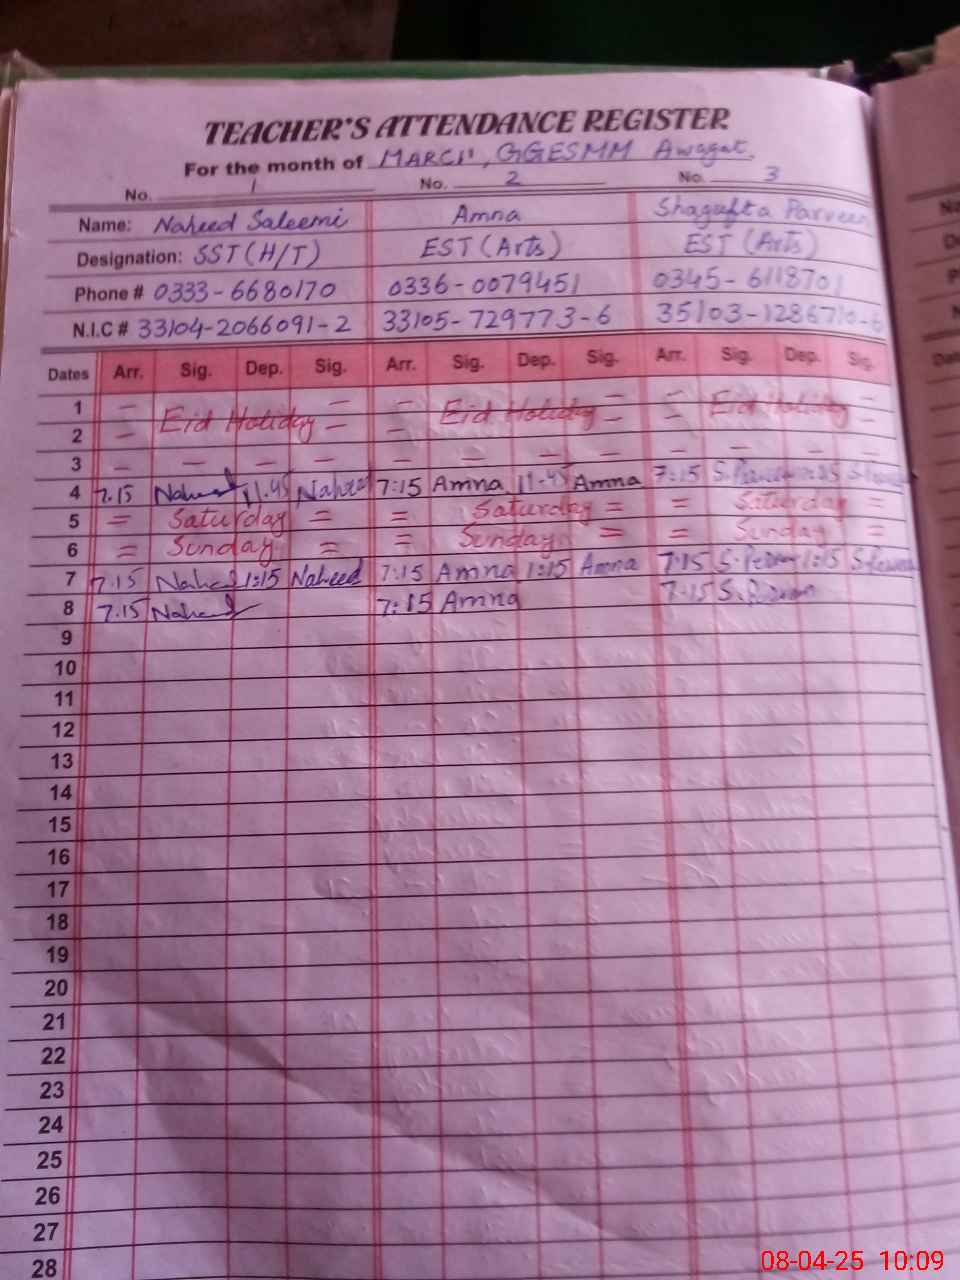 TEACHER'S ATTENDANCE REGISTER
For the month of MARCH, GGESMM Awagat.
No. 1 No. 2 No. 3
Name: Naheed Saleemi Amna Shagufta Parveen
Designation: SST (H/T) EST (Arts) EST (Arts)
Phone # 0333-6680170 0336-0079451 0345-6118701
N.I.C # 33104-2066091-2 33105-729773-6 35103-1286710-6
Dates Arr. Sig. Dep. Sig. Arr. Sig. Dep. Sig. Arr. Sig. Dep. Sig.
1 – Eid Holiday = – Eid Holiday = – Eid Holiday –
2 – –
3 – – – – – – – – – – – –
4 7.15 Naheed 11.45 Naheed 7:15 Amna 11.45 Amna 7:15 S.Parveen
5 = Saturday = = Saturday = = Saturday =
6 = Sunday = = Sunday = = Sunday =
7 7.15 Naheed 1:15 Naheed 7:15 Amna 1:15 Amna 7:15 S.Perveen 1:15
8 7.15 Naheed 7:15 Amna 7.15 S.Perveen
9
10
11
12
13
14
15
16
17
18
19
20
21
22
23
24
25
26
27
28
08-04-25 10:09